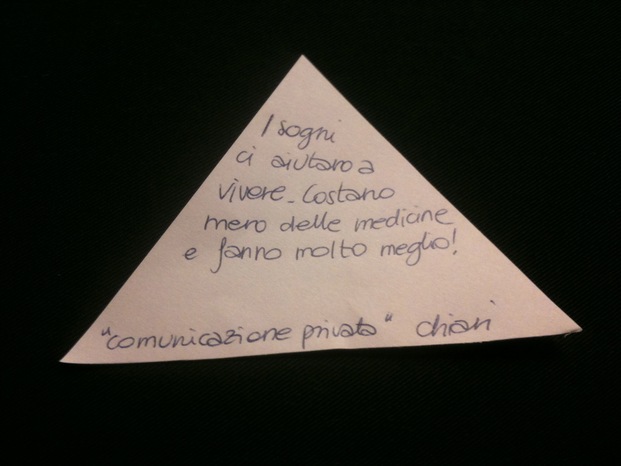 I sogni
ci aiutano a
vivere. Costano
meno delle medicine
e fanno molto meglio!
"comunicazione privata" chiari